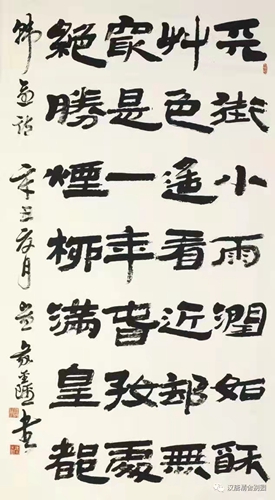 天街小雨潤如酥
艸色遙看近郤無
最是一年春好處
絕勝煙柳滿皇都
韓愈詩 辛丑夏月 書